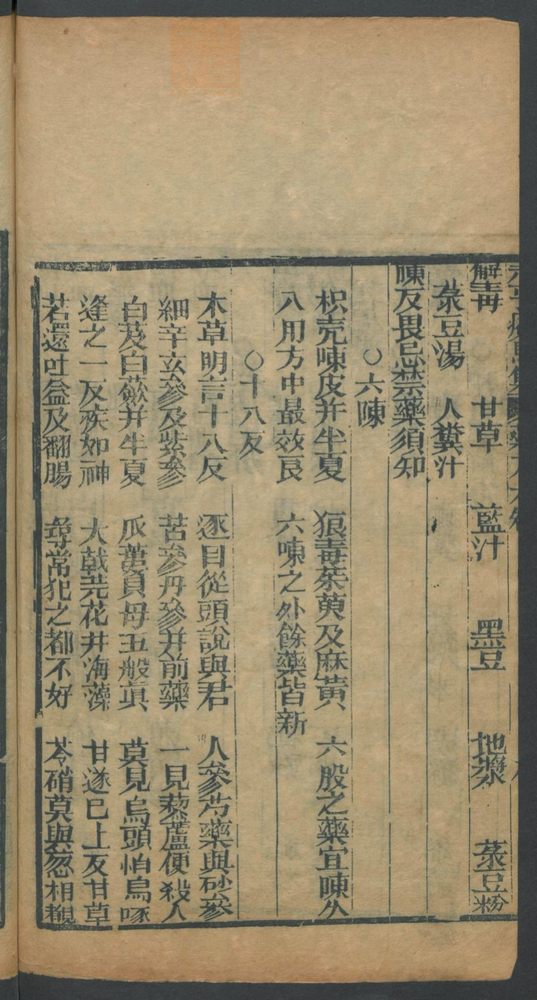 解毒 甘草 藍汁 黑豆 地漿 菉豆粉
菉豆湯 人糞汁
陳反畏忌禁藥須知
○六陳
枳壳陳皮并半夏 狼毒茱萸及麻黃 六般之藥宜陳久
入用方中最效良 六陳之外餘藥皆新
○十八反
本草明言十八反 逐目從頭說與君 人參芍藥與砂參
細辛玄參及紫參 苦參丹參并前藥 一見藜蘆便殺人
白芨白蘞并半夏 瓜蔞貝母五般真 莫見烏頭怕烏啄
逢之一反疾如神 大戟芫花并海藻 甘遂已上反甘草
若還吐蠱及翻腸 尋常犯之都不好 芩硝莫與葱相